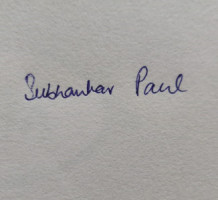 Subhankar Paul